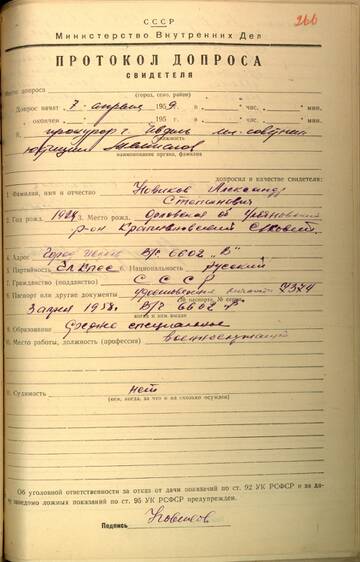 266
СССР
Министерство Внутренних Дел
ПРОТОКОЛ ДОПРОСА
СВИДЕТЕЛЯ
Место допроса
(город, село, район)
Допрос начат 7 апреля 1959 г. в час. мин.
„ окончен 195 г. в час. мин.
Я, прокурор г. Ивдель мл. советник
должность
юстиции
наименование органа, фамилия
допросил в качестве свидетеля:
1. Фамилия, имя и отчество Новиков Александр
Степанович
2. Год рожд. 1929 3. Место рожд. Орловская об
р-он
4. Адрес Город Ивдель В/ч 6602 „В"
5. Партийность Чл. КПСС 6. Национальность русский
7. Гражданство (подданство) СССР
8. Паспорт или другие документы удостоверение личности 7374
(№ паспорта, № серии,
1958г. В/ч 6602
когда и кем выдан
9. Образование Средне специальное
10. Место работы, должность (профессия) военнослужащий
11. Судимость нет
(кем, когда, за что и на сколько осужден)
Об уголовной ответственности за отказ от дачи показаний по ст. 92 УК РСФСР и за да-
чу заведомо ложных показаний по ст. 95 УК РСФСР предупрежден.
Подпись Новиков